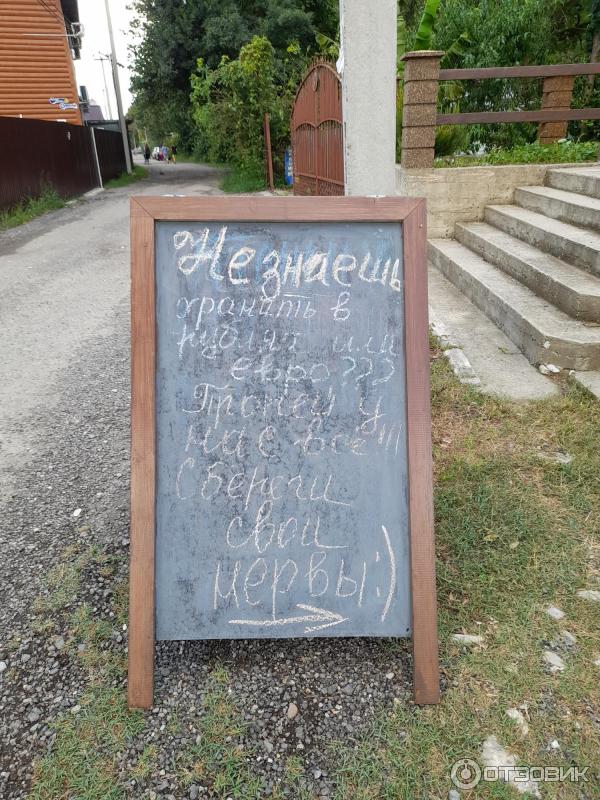 Не знаешь
хранить в
рублях или
евро???
Пропей у
нас все!!!
Сбереги
свои
нервы:)
ОТЗОВИК